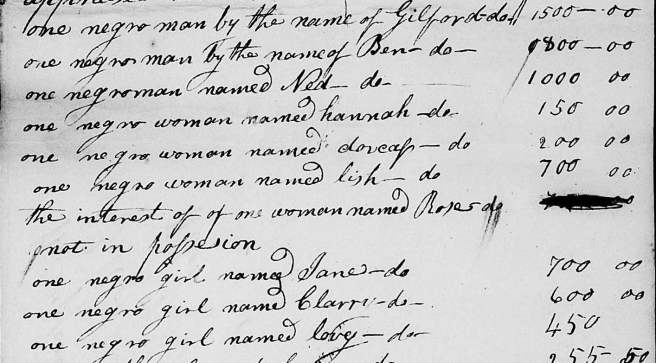 one negro man by the name of Gilford do 1500-00
one negro man by the name of Ben- do- 800-00
one negro man named Ned- do- 1000 00
one negro woman named hannah-do- 150 00
one negro woman named dorcass- do 200 00
one negro woman named lish- do 700 00
the interest of of one woman named Rose do
not in possesion
one negro girl named Jane-do 700 00
one negro girl named Clarry-do- 600 00
one negro girl named lovey- do- 450
do 255 50